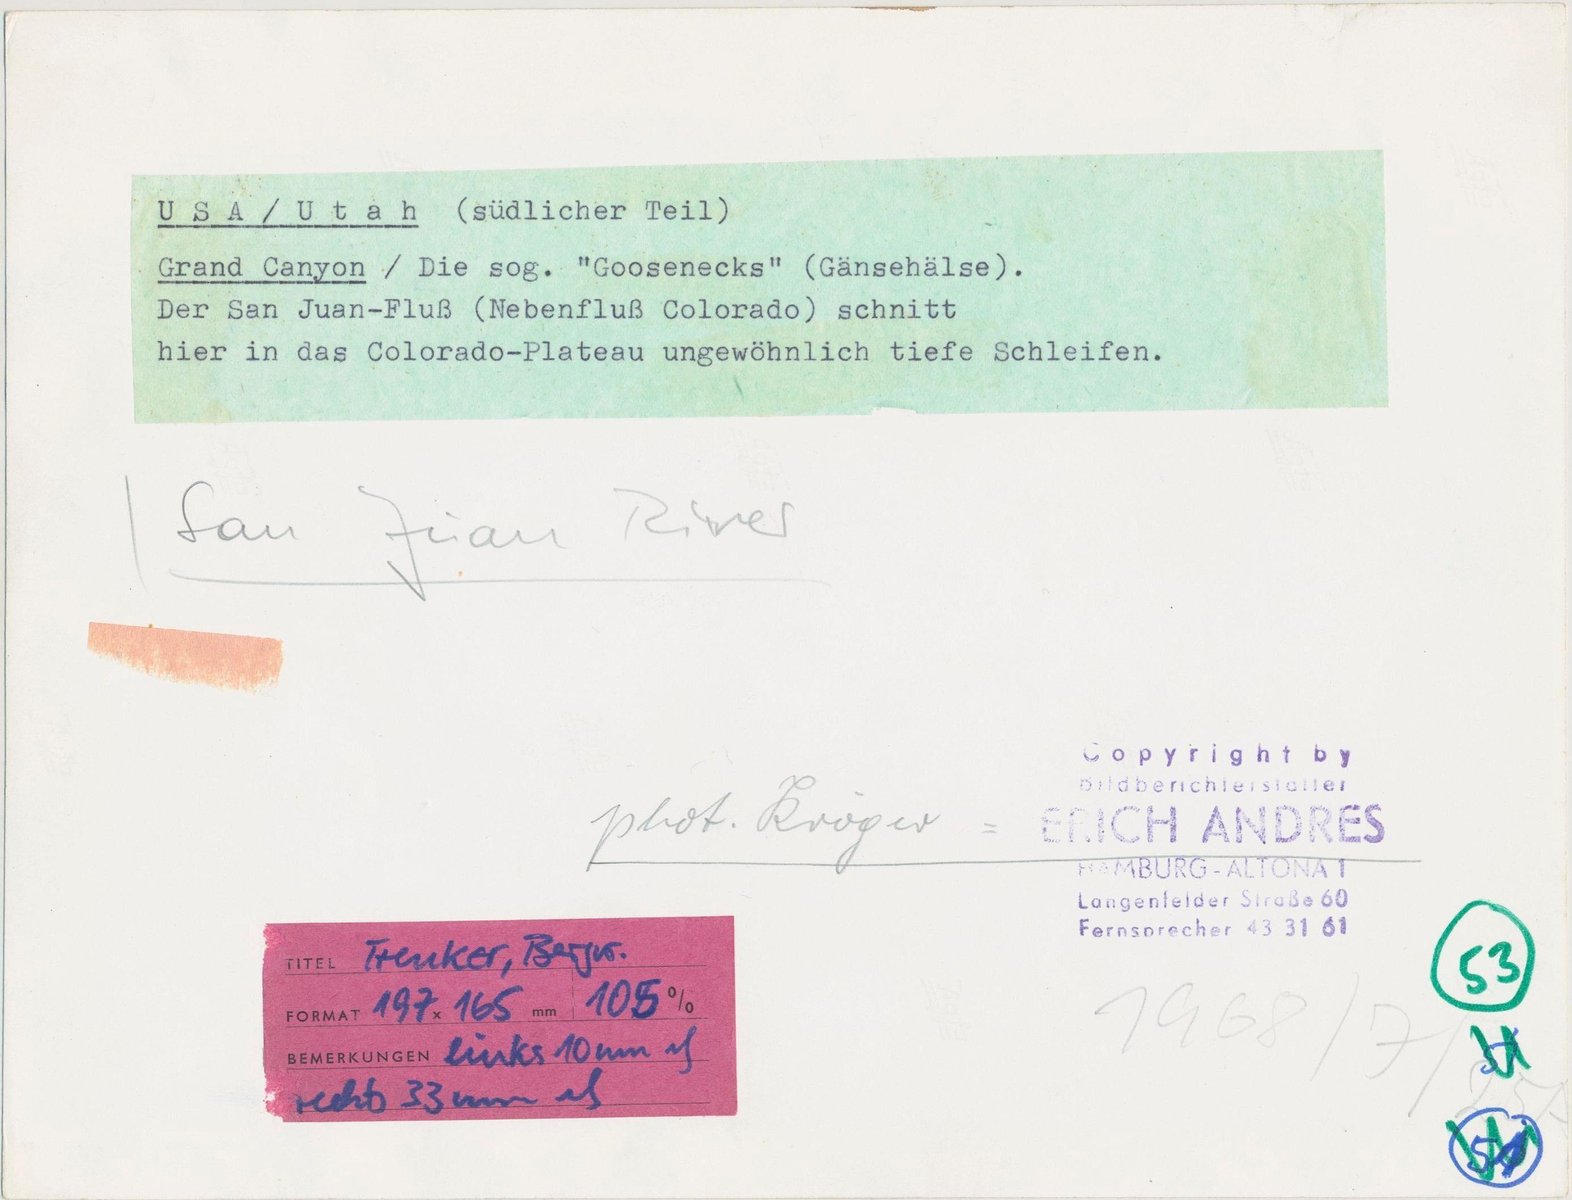 U S A / U t a h (südlicher Teil)
Grand Canyon / Die sog. "Goosenecks" (Gänsehälse).
Der San Juan-Fluß (Nebenfluß Colorado) schnitt
hier in das Colorado-Plateau ungewöhnlich tiefe Schleifen.
San Juan River
Copyright by
Bildberichterstatter
phot. Kröger = ERICH ANDRES
HAMBURG-ALTONA 1
Langenfelder Straße 60
Fernsprecher 43 31 61
TITEL Trenker, Bergw.
FORMAT 197 x 165 mm 105 %
BEMERKUNGEN links 10 mm
rechts 33 mm
53
1968/7/